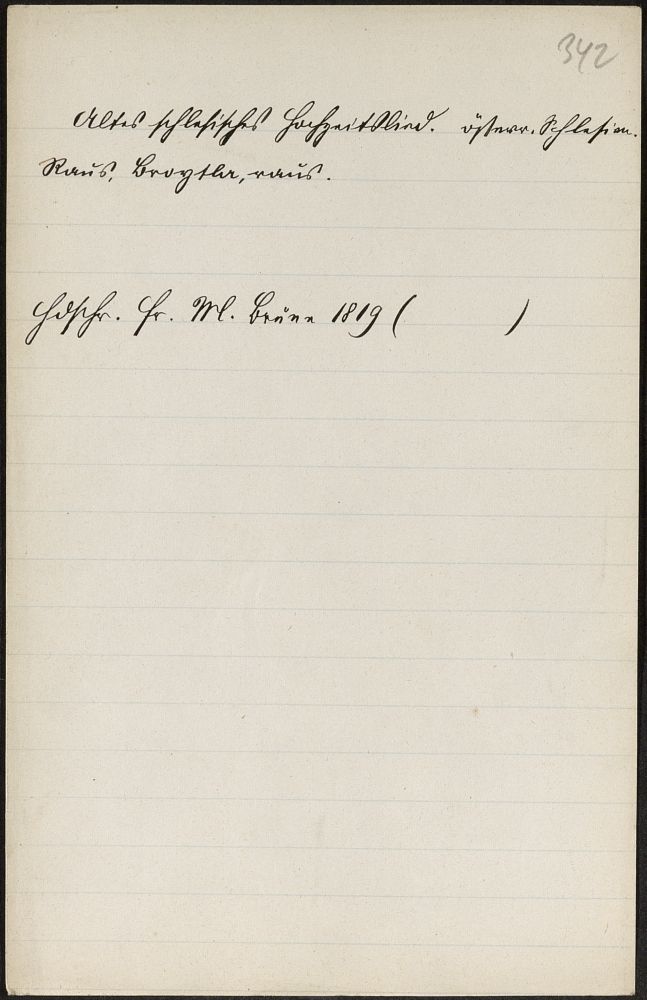 342
Altes schlesisches Hochzeitslied. österr. Schlesien.
Raus, Broytla, raus.
Hdschr. Fr. M. 1819 ( )